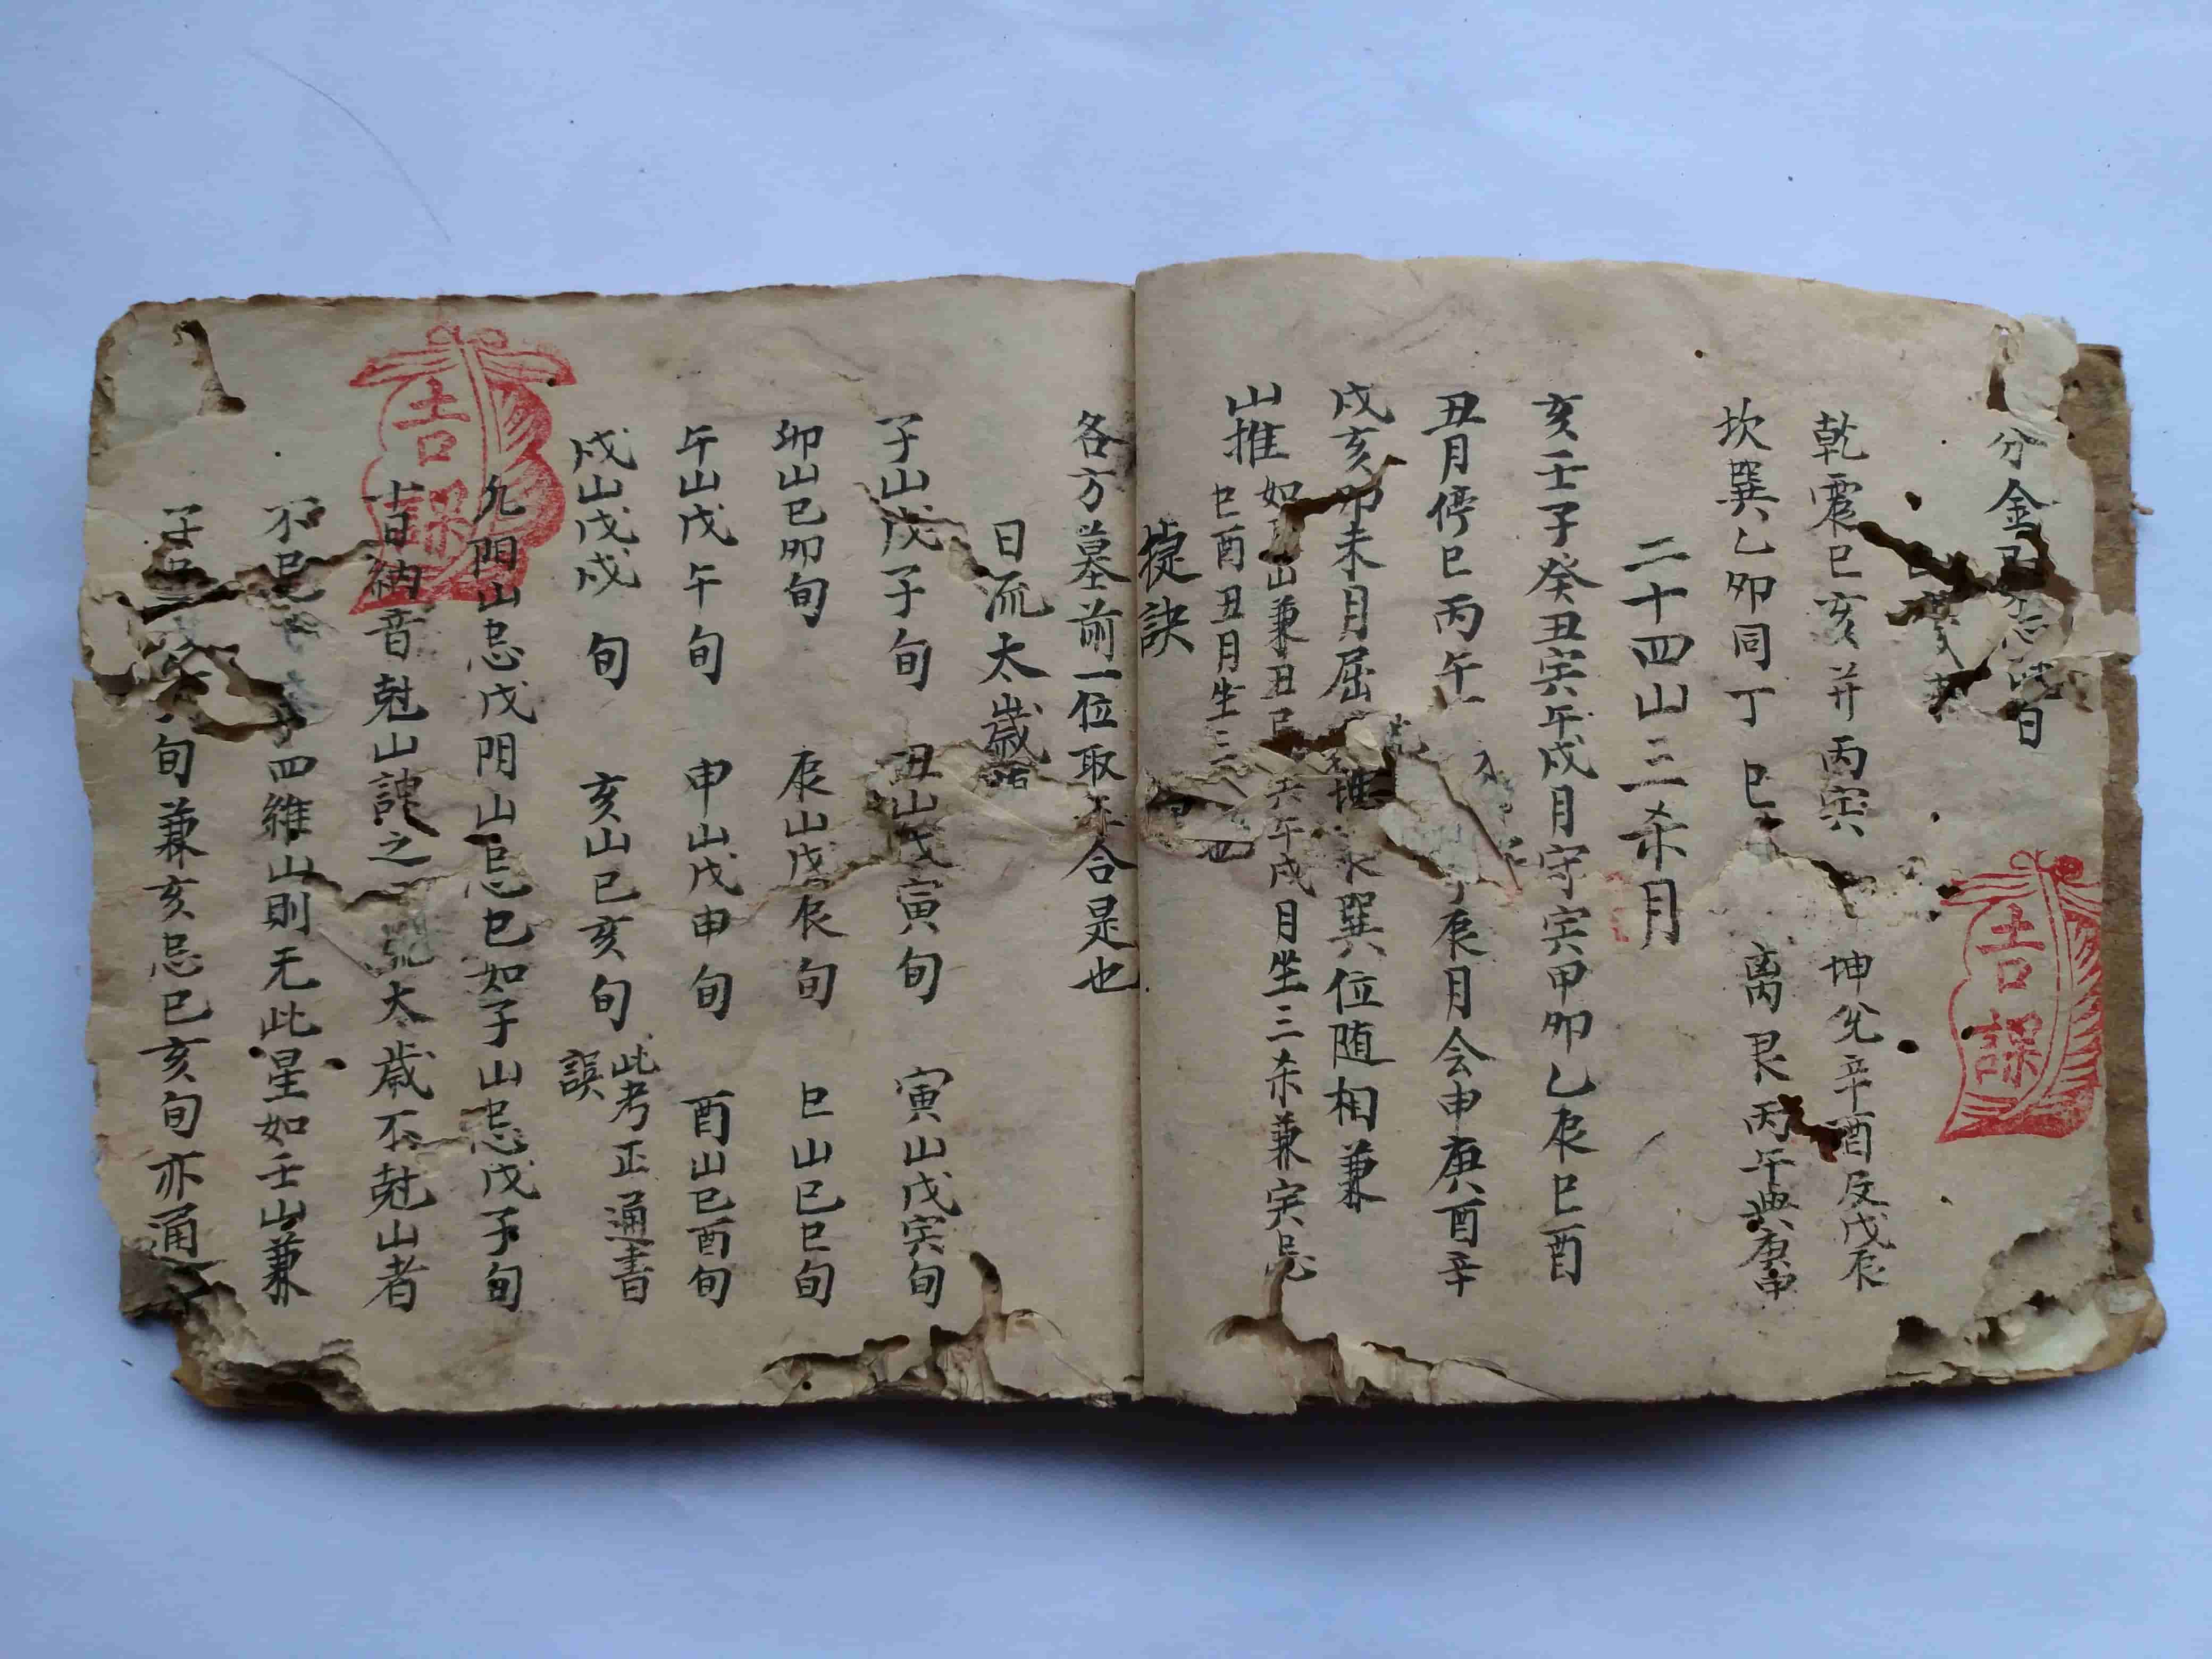 分金
乾震巳亥并丙寅 坤兑辛酉及戊辰
坎巽乙卯同丁巳 离艮丙午典庚申
二十四山三杀月
亥壬子癸丑寅午戌月守寅甲卯乙辰巳酉
丑月停巳丙午 辰月会申庚酉辛
戌亥卯未月屈 巽位随相兼
山推
如 山兼丑巳 午戌月坐三杀兼寅忌
巳酉丑月坐三
捷訣
各方墓前一位取 合是也
日流太歲
子山戊子旬 丑山戊寅旬 寅山戊寅旬
卯山巳卯旬 辰山戊辰旬 巳山巳巳旬
午山戊午旬 申山戊申旬 酉山巳酉旬
戌山戊戌旬 亥山巳亥旬
此考正通書
誤
凢陽山忌戊阴山忌巳如子山忌戊子旬
納音尅山謂之 太歲不尅山者
不忌 四維山則无此星如壬山兼
子 旬兼亥忌巳亥旬亦通
吉課
吉課